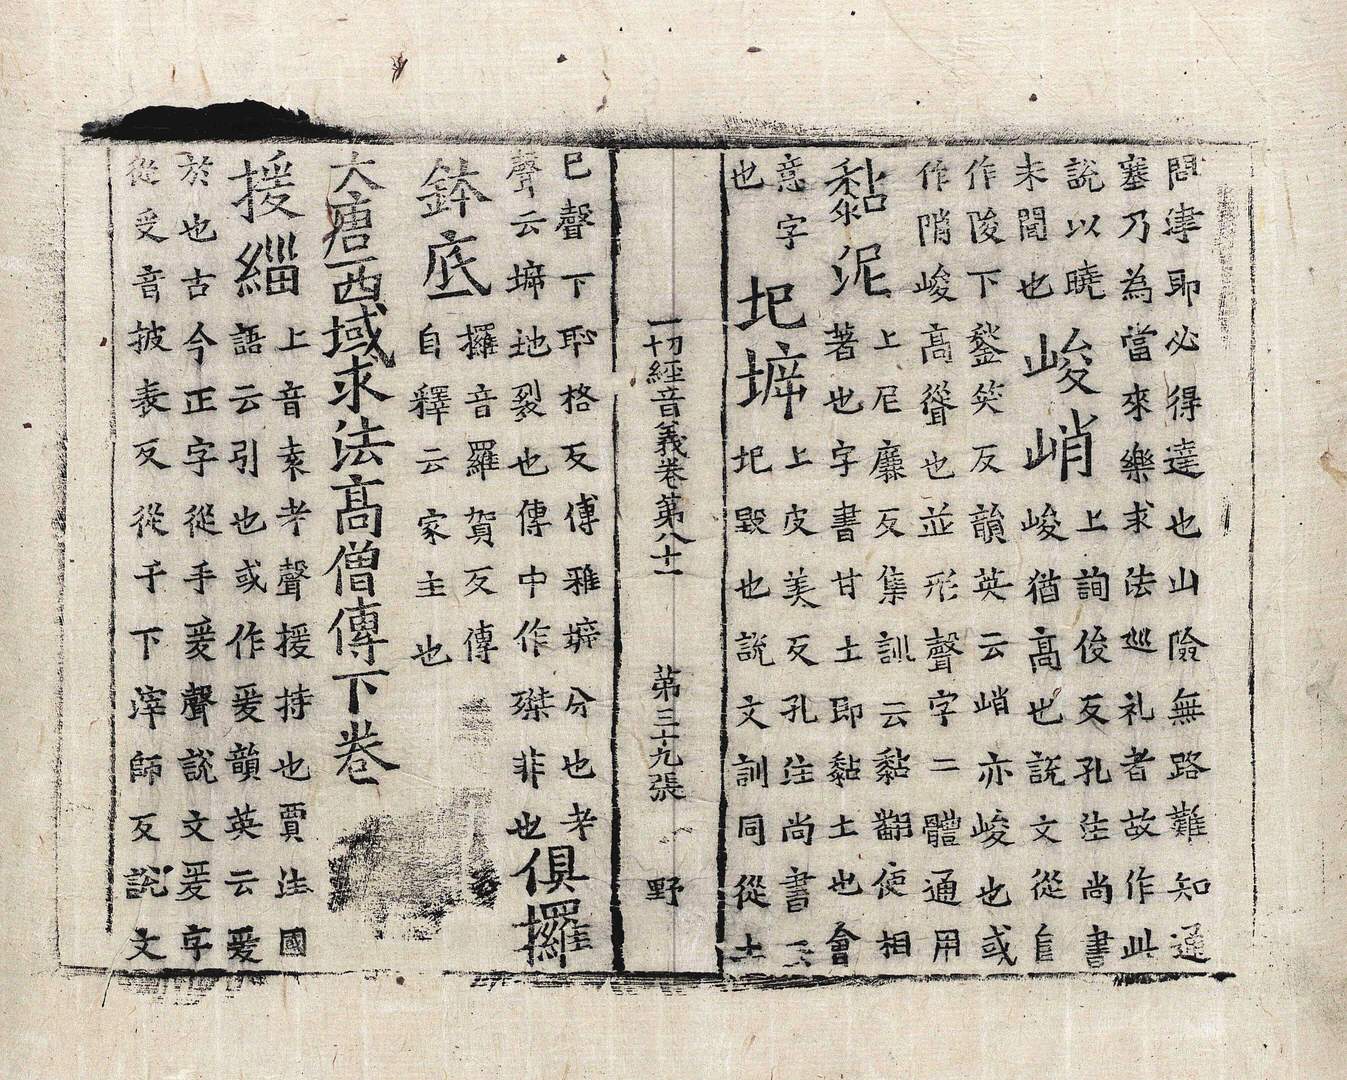 問津即必得達也山險無路難知通
塞乃為當來樂求法巡礼者故作此
說以曉
未聞也
峻峭
上詢俊反孔注尚書
峻猶高也說文從𨸏
作陖下鍫笑反韻英云峭亦峻也或
作陗峻高聳也並形聲字二體通用
黏泥
上尼廉反集訓云黏翻使相
著也字書甘土即黏土也會
意字
也
圯𡍩
上皮美反孔注尚書云
圯毀也說文訓同從土
一切經音義卷第八十一 第三十九張 野
巳聲下耻格反傅雅𡍩分也考
聲云𡍩地裂也傳中作非也
俱攞
鉢底
攞音羅賀反傳
自釋云家主也
大唐西域求法高僧傳下卷
援緇
上音袁考聲援持也賈注國
語云引也或作爰韻英云爰
於也古今正字從手爰聲說文爰字
從受音披表反從于下滓師反說文